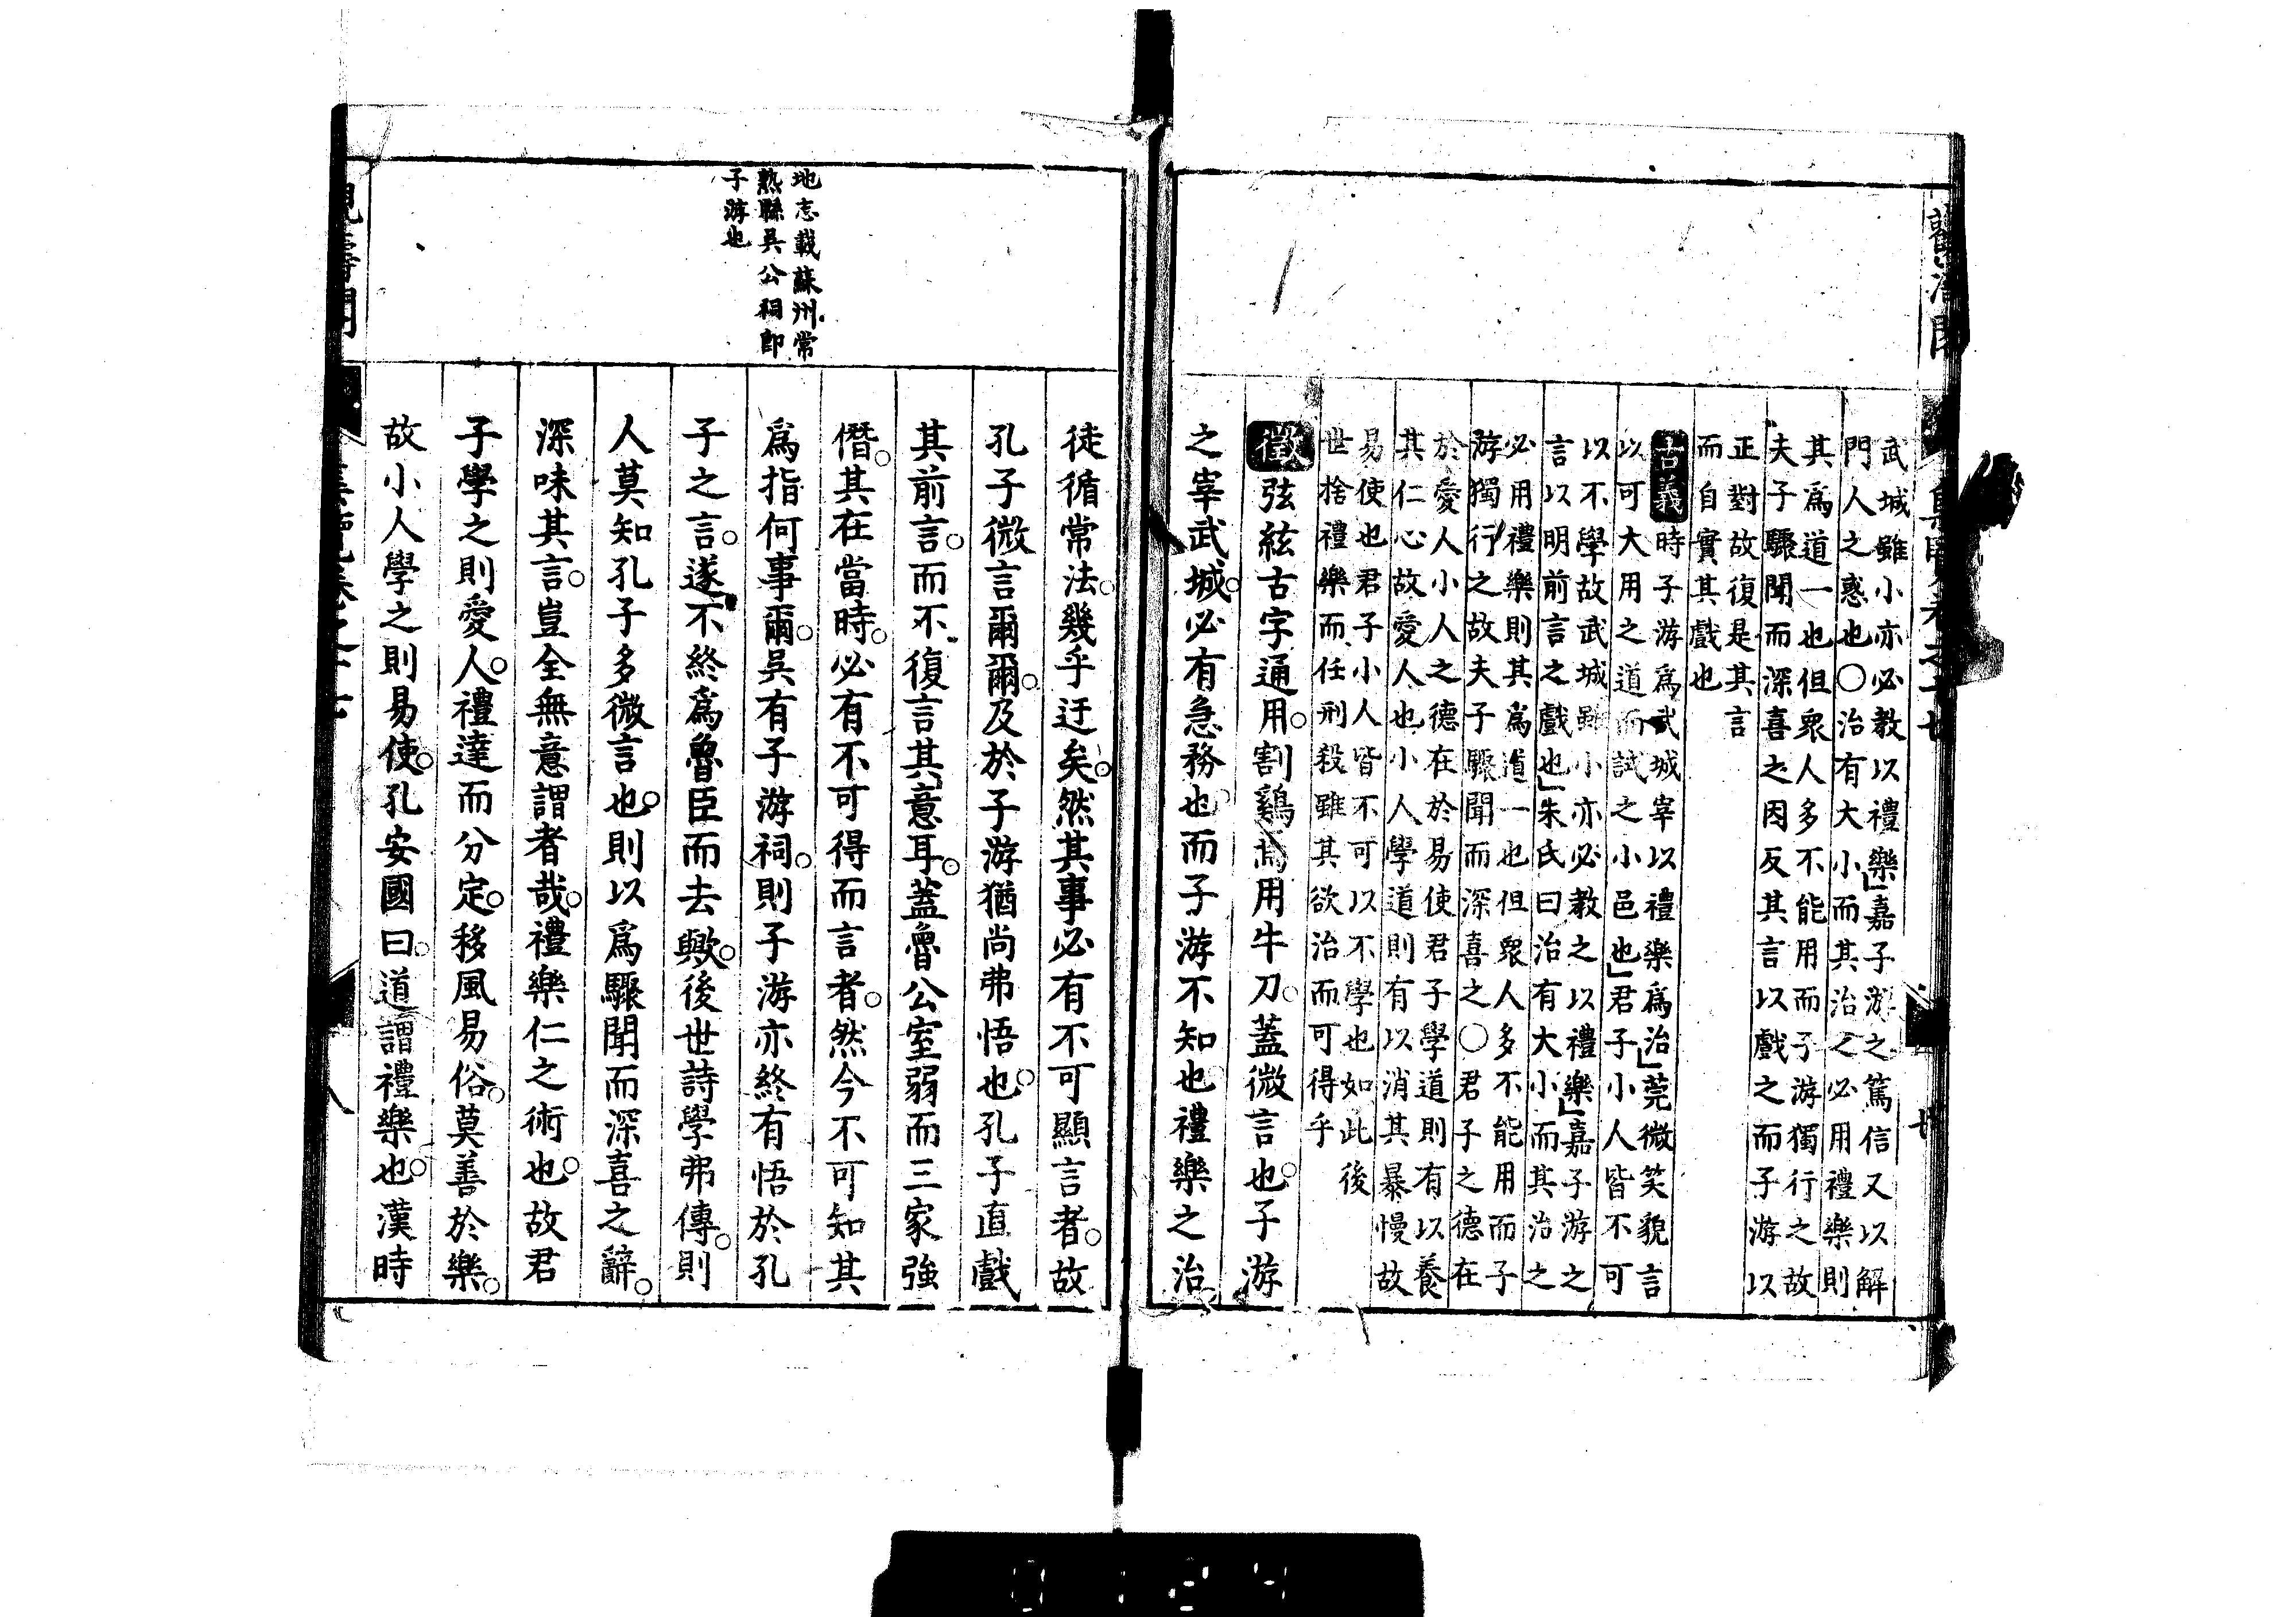 武城雖小亦必教以禮樂」嘉子游之篤信又以解
門人之惑也○治有大小而其治之必用禮樂則
其爲道一也但眾人多不能用而子游獨行之故
夫子驟聞而深喜之因反其言以戲之而子游以
正對故復是其言
而自實其戲也
古義時子游爲武城宰以禮樂爲治」莞微笑貌言
以可大用之道而試之小邑也」君子小人皆不可
以不學故武城雖小亦必教之以禮樂」嘉子游之
言以明前言之戲也」朱氏曰治有大小而其治之
必用禮樂則其爲道一也但眾人多不能用而子
游獨行之故夫子驟聞而深喜之○君子之德在
於愛人小人之德在於易使君子學道則有以養
其仁心故愛人也小人學道則有以消其暴慢故
易使也君子小人皆不可以不學也如此後
世捨禮樂而任刑殺雖其欲治而可得乎
徵弦絃古字通用。割鷄焉用牛刀。蓋微言也。子游
之宰武城。必有急務也。而子游不知也。禮樂之治。
地志載蘇州常
熟縣吳公祠即
子游也
徒循常法。幾乎迂矣。然其事必有不可顯言者。故
孔子微言爾爾。及於子游猶尚弗悟也。孔子直戲
其前言。而不復言其意耳。蓋魯公室弱而三家強
僭。其在當時。必有不可得而言者。然今不可知其
爲指何事爾。吳有子游祠。則子游亦終有悟於孔
子之言。遂不終爲魯臣而去歟。後世詩學弗傳。則
人莫知孔子多微言也。則以爲驟聞而深喜之辭。
深味其言。豈全無意謂者哉。禮樂仁之術也。故君
子學之則愛人。禮達而分定。移風易俗。莫善於樂。
故小人學之則易使。孔安國曰。道謂禮樂也。漢時
八
0124